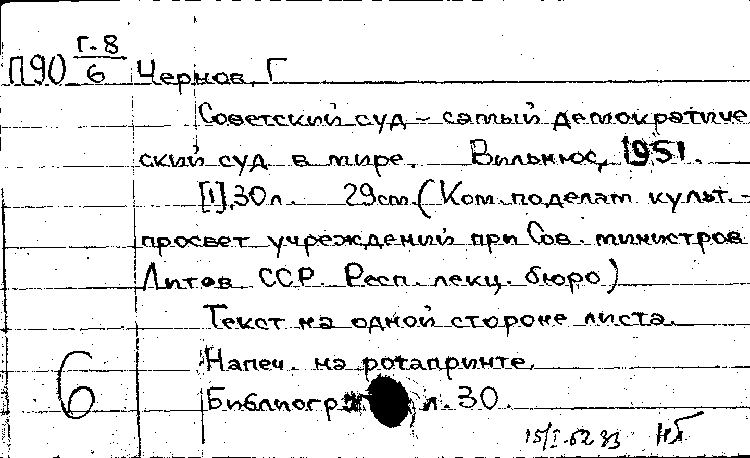 П90 Г.8/6 Чернов, Г
Советский суд – самый демократиче
ский суд в мире. Вильнюс, 1951.
[1], 30 л. 29 см. (Ком. по делам культ.-
просвет учреждений при Сов. министров
Литов ССР. Респ. лекц. бюро)
Текст на одной стороне листа.
Напеч. на ротапринте.
6 Библиогр л. 30.
15/I-52